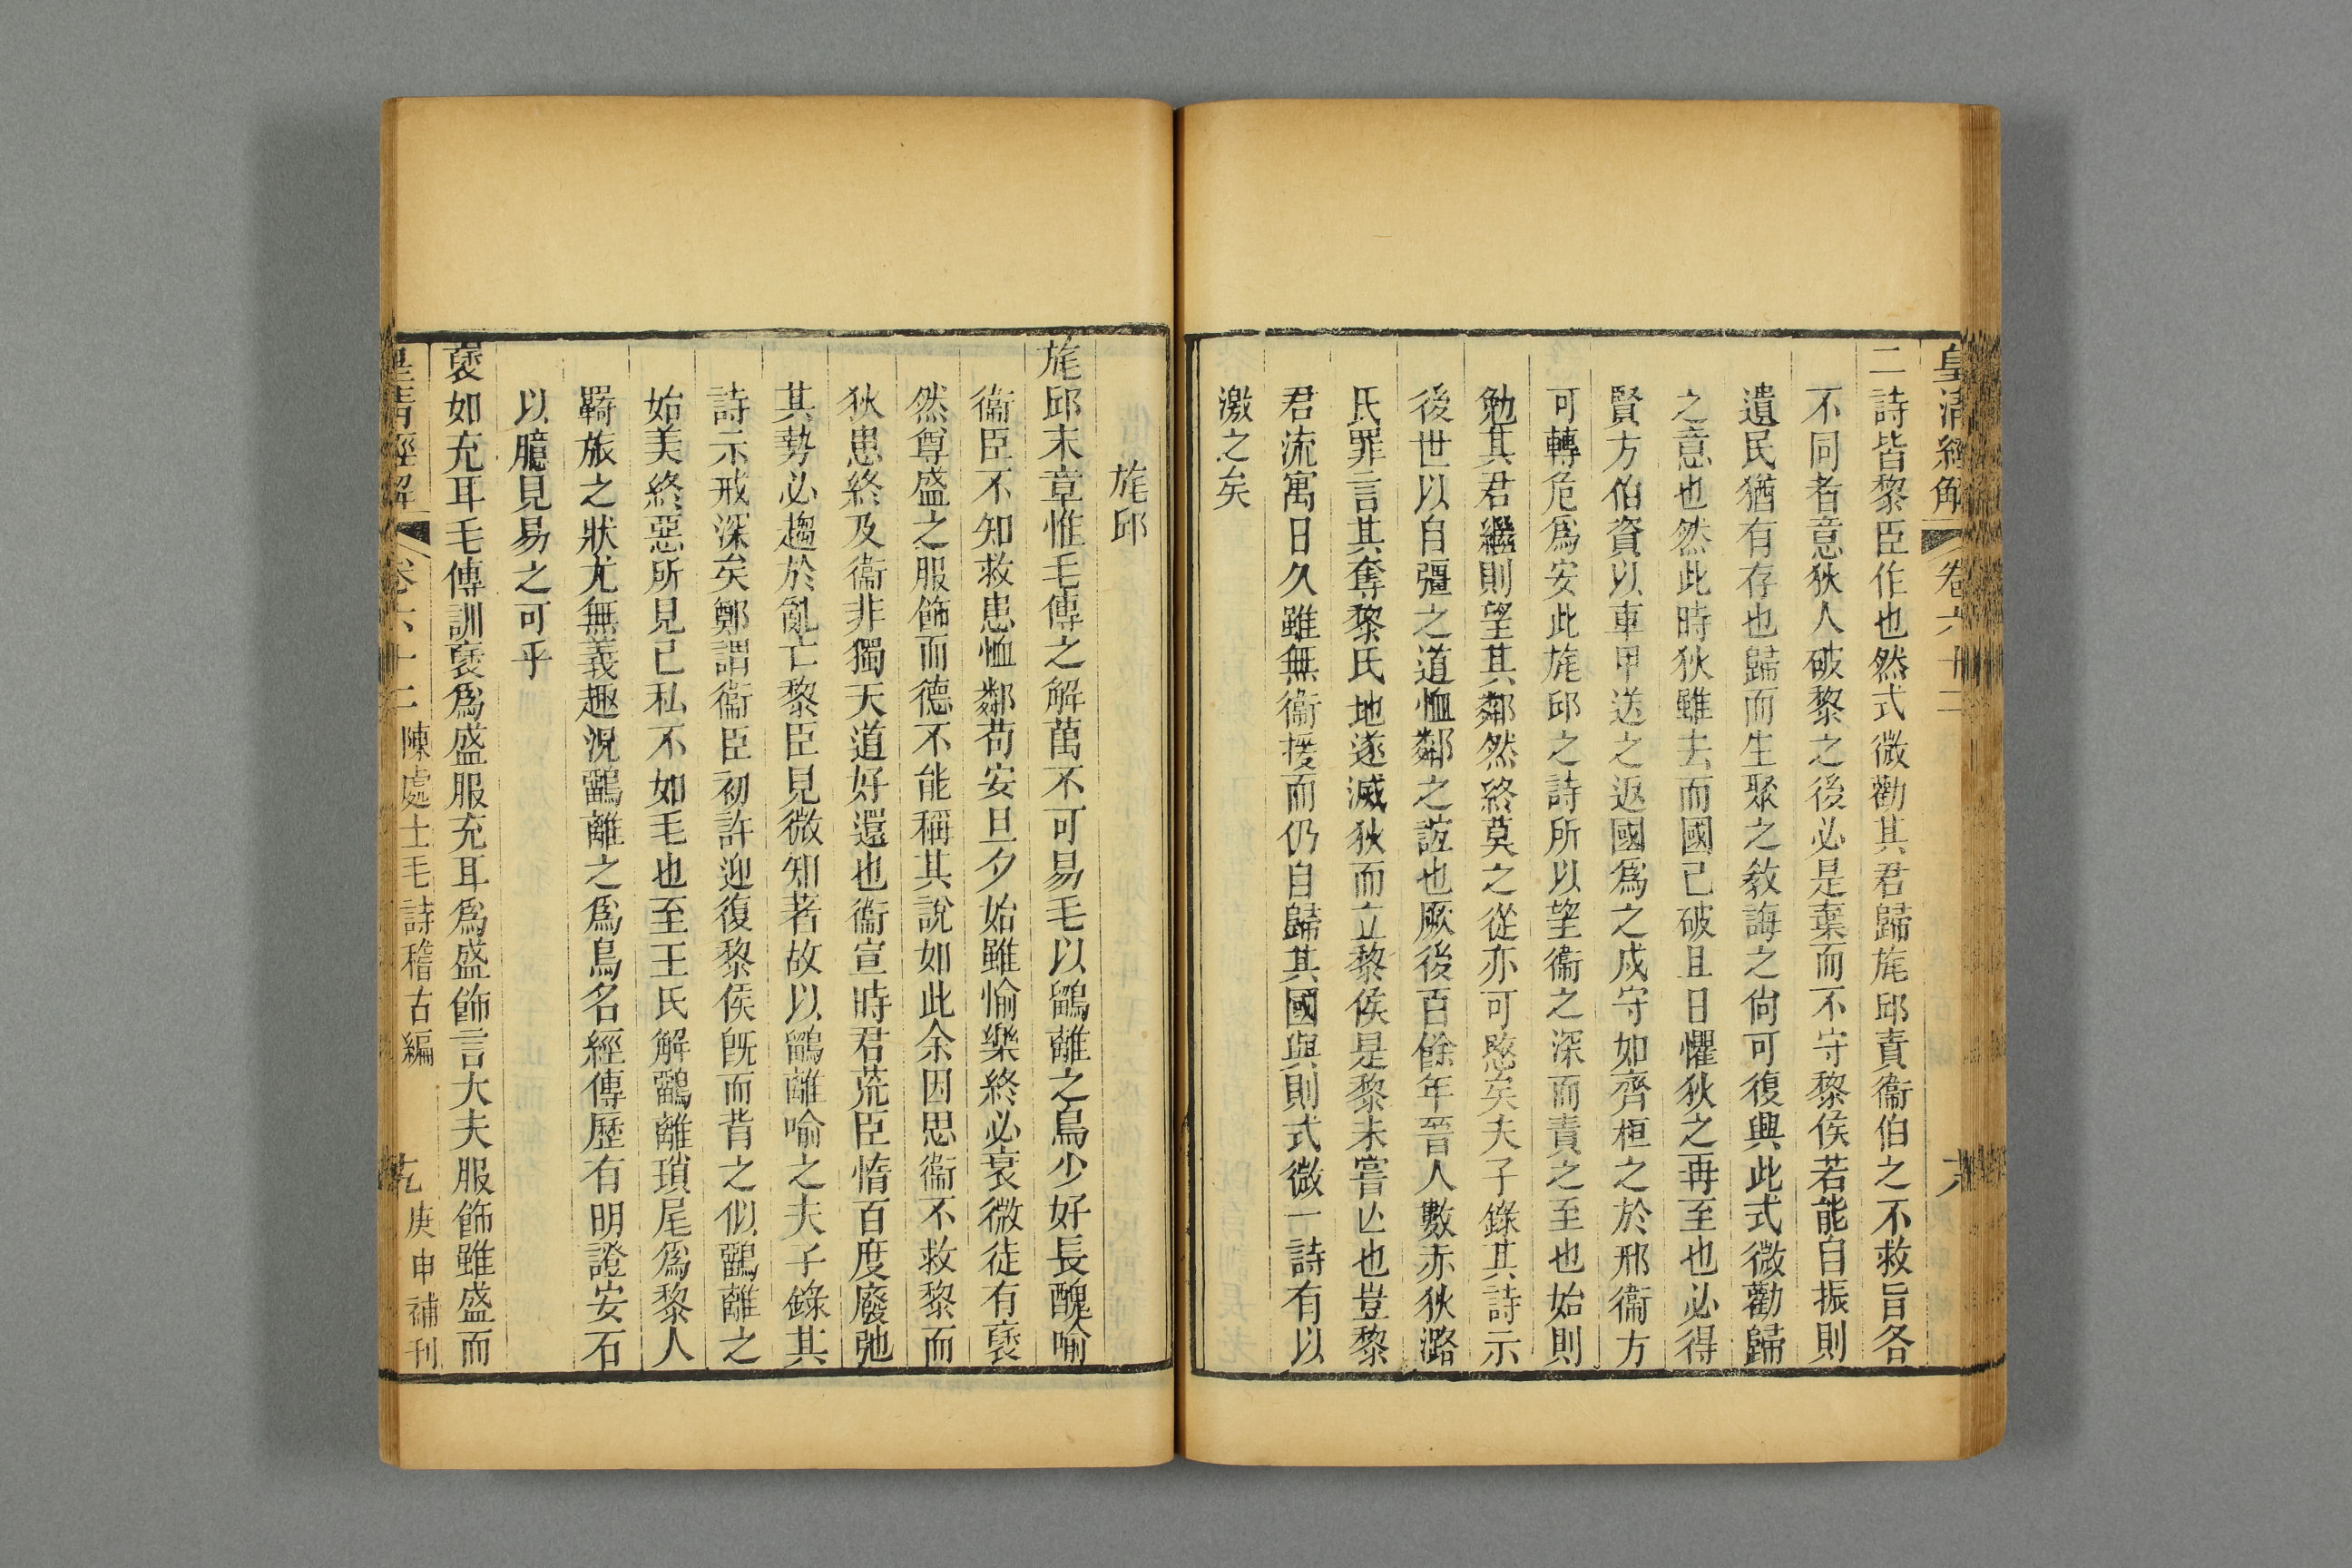 皇清經解 卷六十二 六
二詩皆黎臣作也然式微勸其君歸旄邱責衞伯之不救旨各
不同者意狄人破黎之後必是棄而不守黎侯若能自振則
遺民猶有存也歸而生聚之敎誨之尙可復興此式微勸歸
之意也然此時狄雖去而國已破且日懼狄之再至也必得
賢方伯資以車甲送之返國爲之戍守如齊桓之於邢衞方
可轉危爲安此旄邱之詩所以望衞之深而責之至也始則
勉其君繼則望其鄰然終莫之從亦可愍矣夫子錄其詩示
後世以自彊之道恤鄰之誼也厥後百餘年晉人數赤狄潞
氏罪言其奪黎氏地遂滅狄而立黎侯是黎未嘗亾也豈黎
君流寓日久雖無衞援而仍自歸其國與則式微一詩有以
激之矣
旄邱
旄邱末章惟毛傳之解萬不可易毛以鶹離之鳥少好長醜喻
衞臣不知救患恤鄰苟安旦夕始雖愉樂終必衰微徒有褎
然尊盛之服飾而德不能稱其說如此余因思衞不救黎而
狄患終及衞非獨天道好還也衞宣時君荒臣惰百度廢弛
其勢必趨於亂亡黎臣見微知著故以鶹離喻之夫子錄其
詩示戒深矣鄭謂衞臣初許迎復黎侯旣而背之似鶹離之
始美終惡所見已私不如毛也至王氏解鶹離瑣尾爲黎人
羇旅之狀尤無義趣況鶹離之爲鳥名經傳歷有明證安石
以臆見易之可乎
褎如充耳毛傳訓褎爲盛服充耳爲盛飾言大夫服飾雖盛而
皇清經解 卷六十二 陳處士毛詩稽古編 庚申補刊